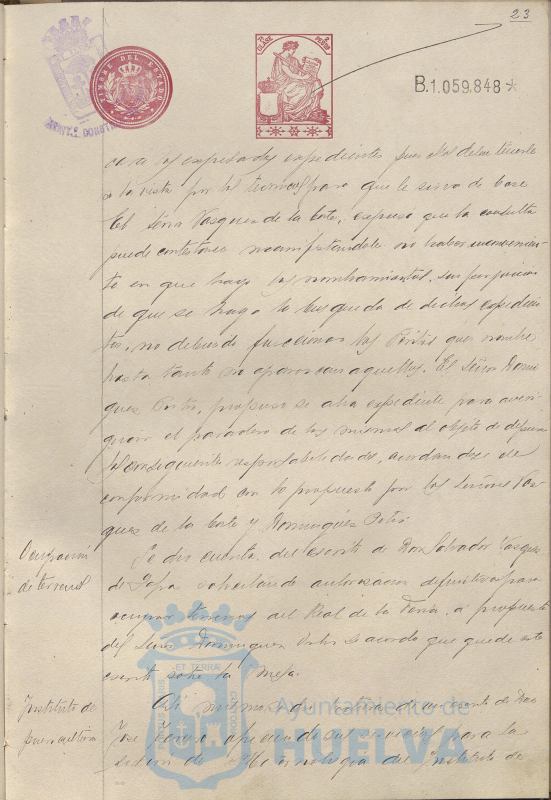 23
TIMBRE DEL ESTADO
7ª CLASE
B.1.059.848*
expedientes pues ellos deben tenerse
a la vista por los técnicos para que le sirva de base
El Señor Vasquez de la Corte, expuso que la consulta
puede contestarse manifestandole no haber inconvenien-
to en que haga los nombramientos, sin perjuicio
de que se haga la busqueda de dichos expedien-
tes, no debiendo funcionar los Peritos que nombre
hasta tanto no aparezcan aquellos. El Señor Domin-
guez Ortiz, propuso se abra expediente para averi-
guar el paradero de los mismos al objeto de depurar
las consiguientes responsabilidades, acordandose de
conformidad con lo propuesto por los Señores Vas-
quez de la Corte y Dominguez Ortiz
Ocupación
de terrenos
Se dio cuenta del escrito de Don Salvador Vasquez
de solicitando autorización definitiva para
ocupar terrenos del Real de la Feria, a propuesta
del Señor Dominguez Ortiz se acordó que quede este
escrito sobre la mesa.
Instituto de
puericultura
Asi mismo se de escrito de Don
José ofreciendo sus servicios para la
sección de del Instituto de
ET TERRÆ
Ayuntamiento de
HUELVA